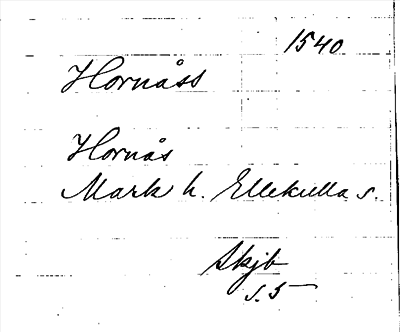 1540
Hornåss
Hornås
Mark h. Ellekulla s.
Skjb
s. 5